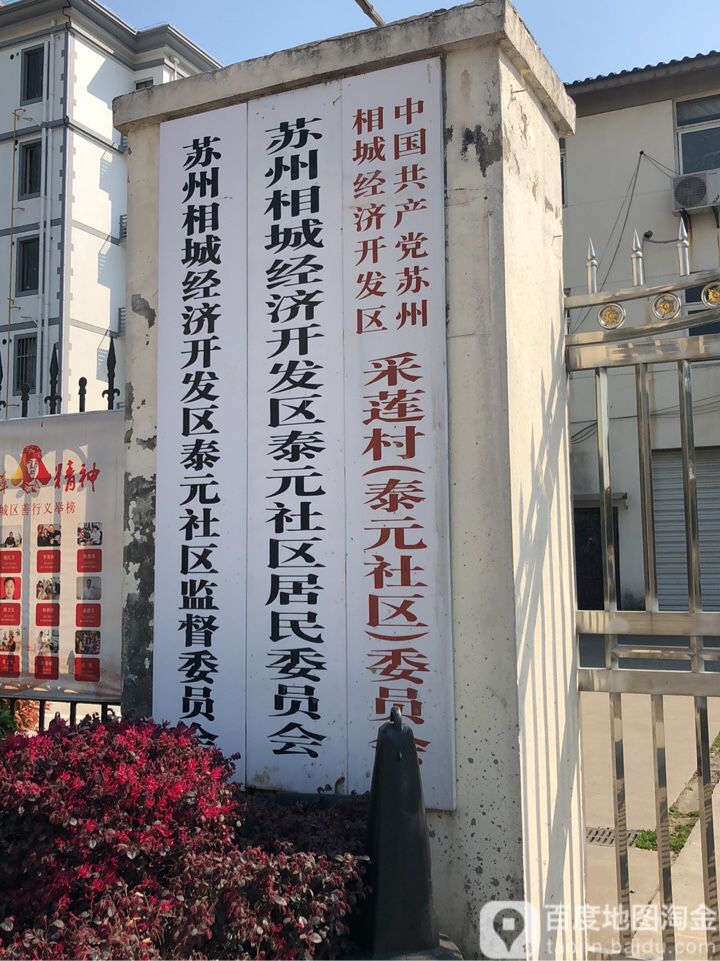 中国共产党苏州
相城经济开发区
采莲村(泰元社区)委员会
苏州相城经济开发区泰元社区居民委员会
苏州相城经济开发区泰元社区监督委员会
精神
城区善行义举榜
百度地图淘金
taojin.baidu.com